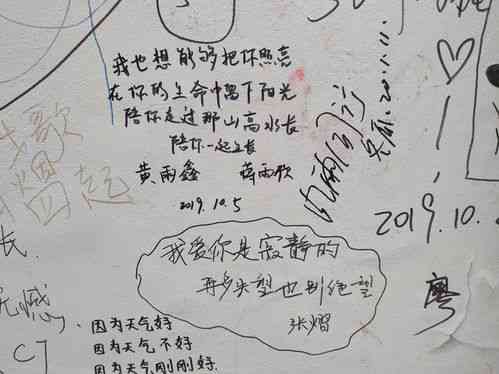 我也想能够把你照亮
在你的生命中留下阳光
陪你走过那山高水长
陪你一起生长
黄雨鑫 蒋雨歌
2019.10.5
歌
四起
我爱你是寂静的
再多失望也别绝望
张熠
2019.10.
粤
长
无憾
因为天气好
因为天气不好
因为天气刚刚好.